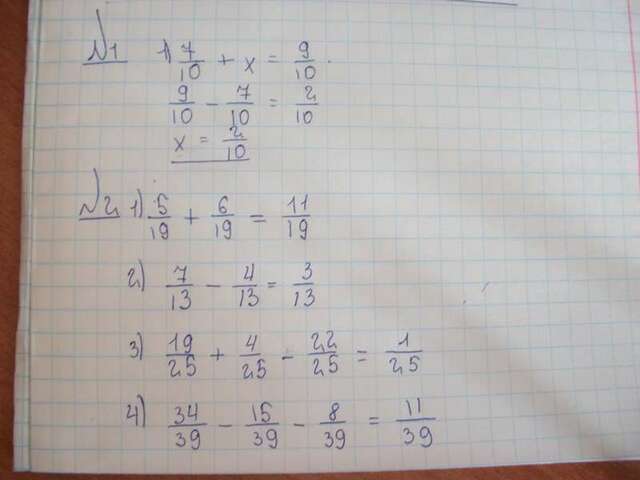 №1 1) 7/10 + x = 9/10.
9/10 - 7/10 = 2/10
x = 2/10
№2 1) 5/19 + 6/19 = 11/19
2) 7/13 - 4/13 = 3/13
3) 19/25 + 4/25 - 22/25 = 1/25
4) 34/39 - 15/39 - 8/39 = 11/39